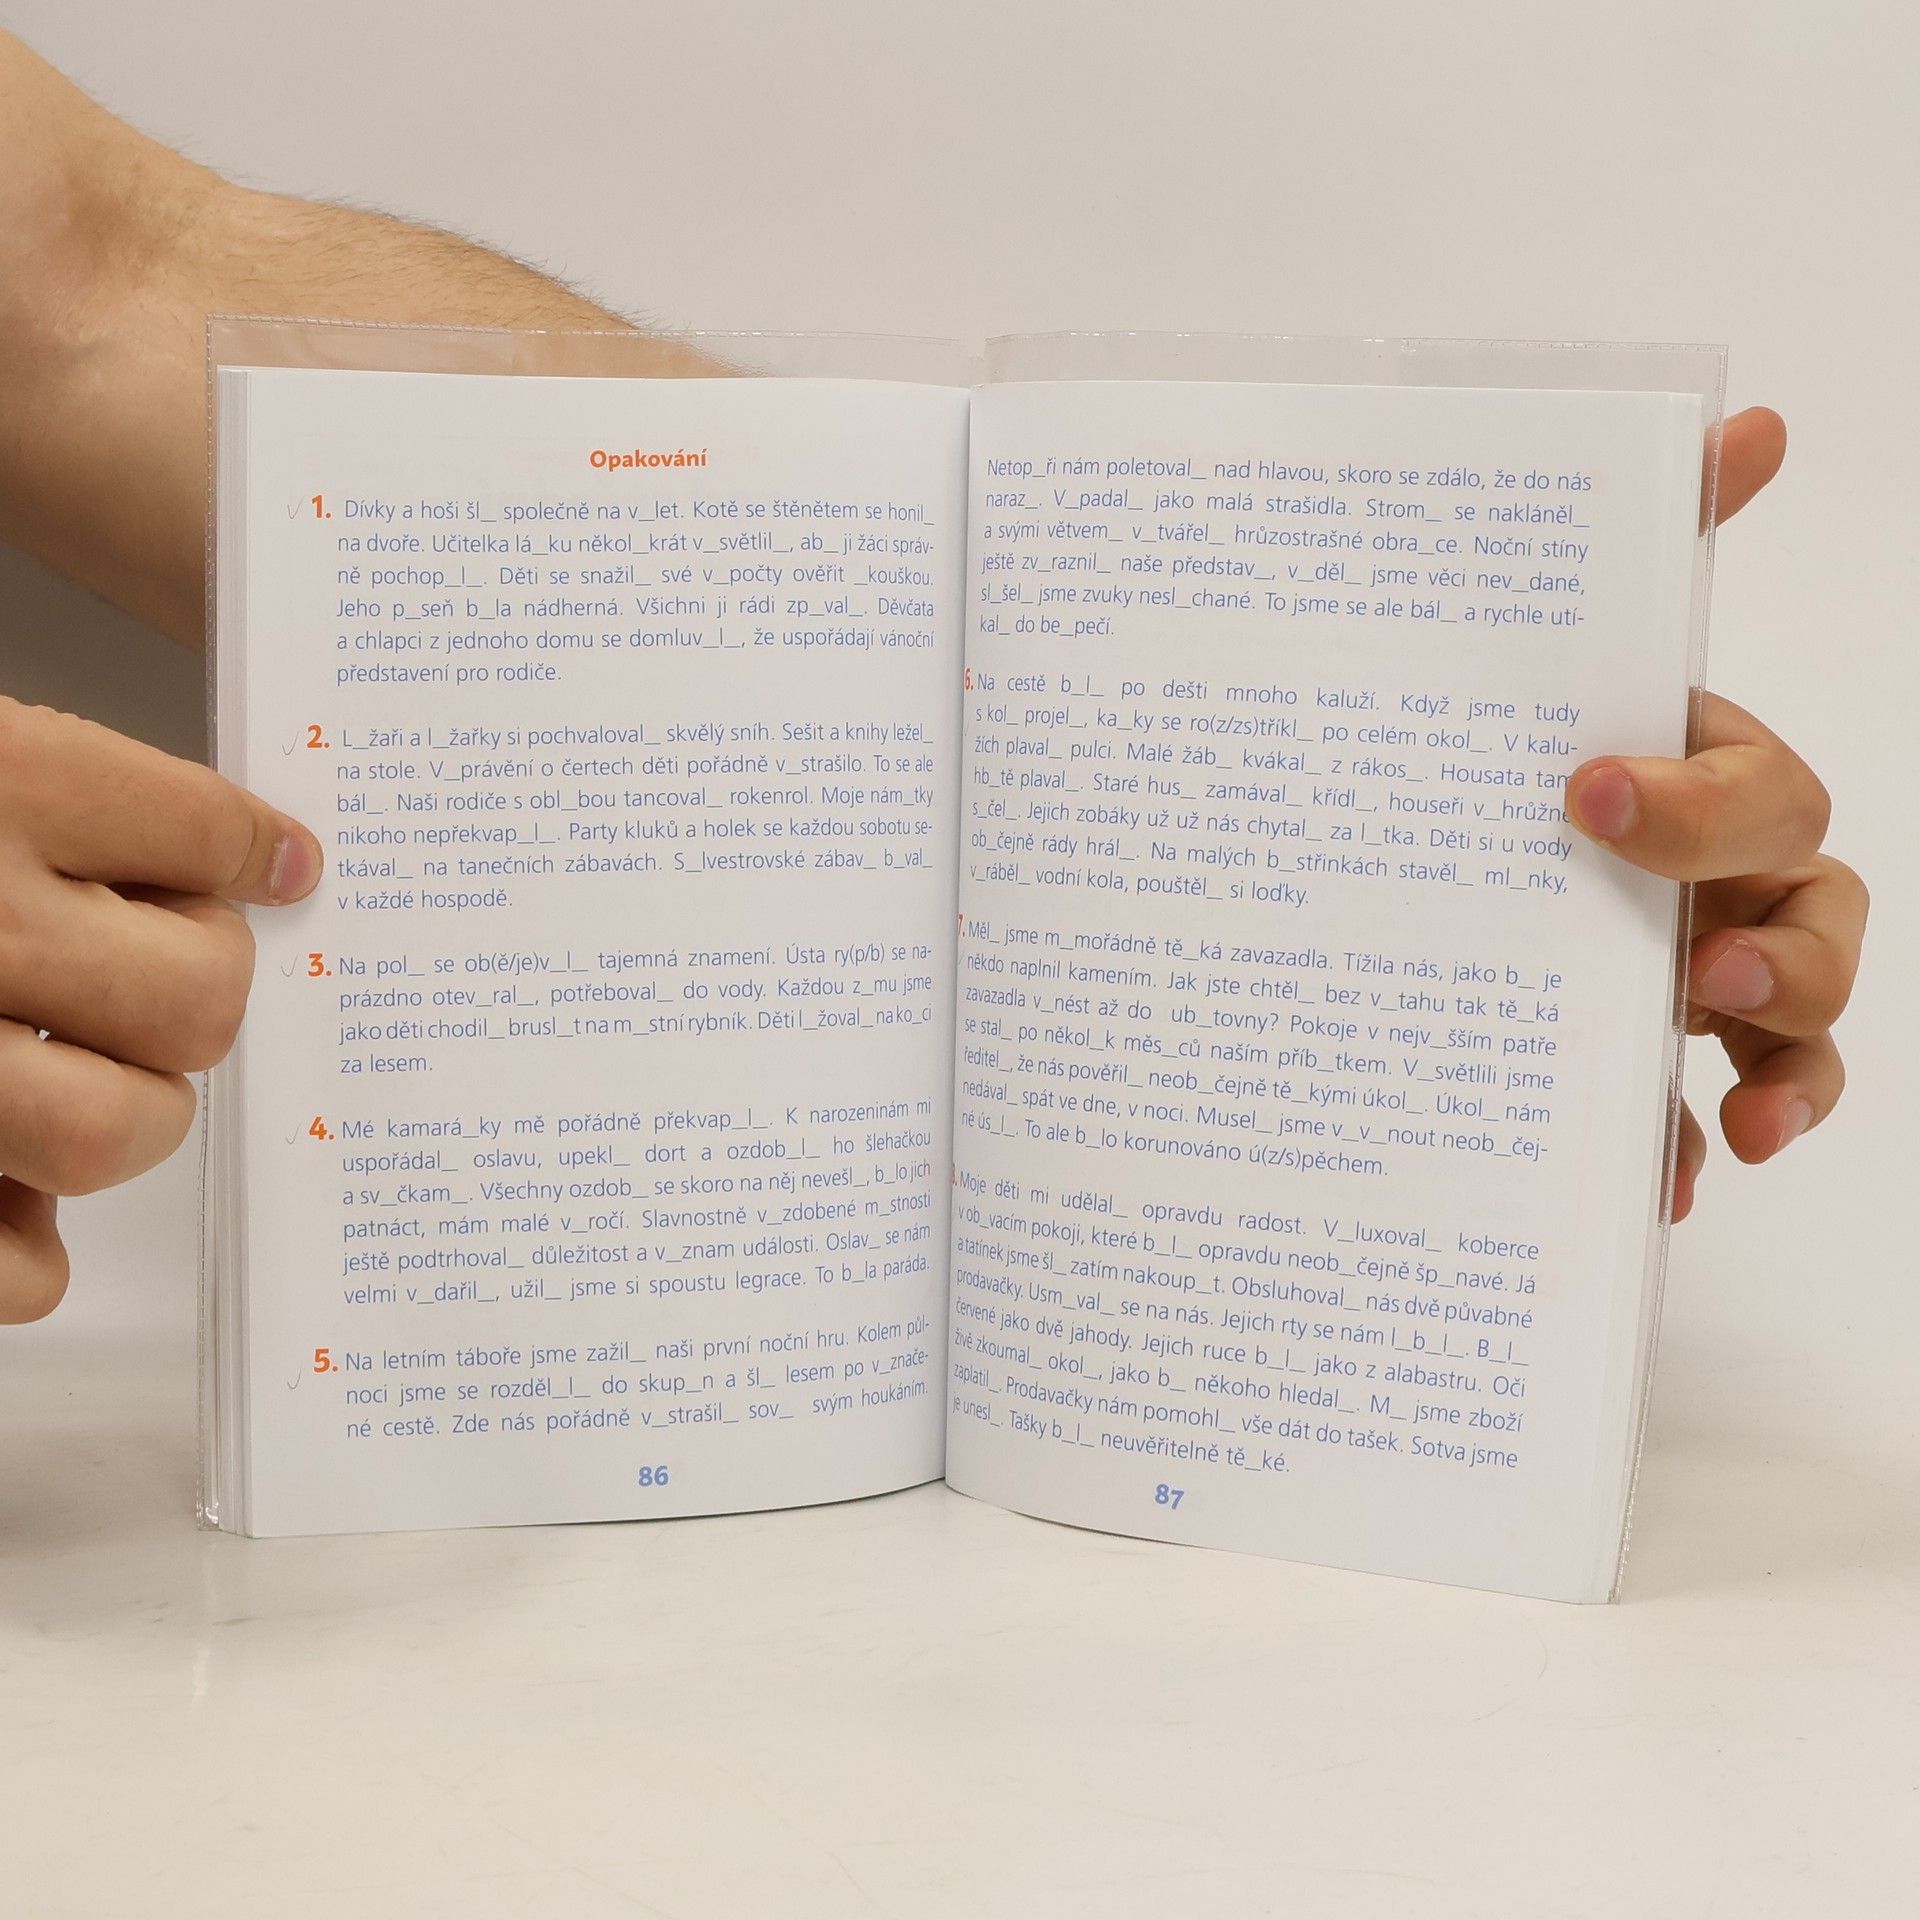 Opakování
1. Dívky a hoši šl_ společně na v_let. Kotě se štěnětem se honil_
na dvoře. Učitelka lá_ku několi_krát v_světlil_, ab_ ji žáci správ-
ně pochop_l_. Děti se snažil_ své v_počty ověřit _kouškou.
Jeho p_seň b_la nádherná. Všichni ji rádi zp_val_. Děvčata
a chlapci z jednoho domu se domluv_l_, že uspořádají vánoční
představení pro rodiče.
2. L_žaři a l_žařky si pochvaloval_ skvělý sníh. Sešit a knihy ležel_
na stole. V_právění o čertech děti pořádně v_strašilo. To se ale
bál_. Naši rodiče s obl_bou tancoval_ rokenrol. Moje nám_tky
nikoho nepřekvap_l_. Party kluků a holek se každou sobotu se-
tkával_ na tanečních zábavách. S_lvestrovské zábav_ b_val_
v každé hospodě.
3. Na pol_ se ob(ě/je)v_l_ tajemná znamení. Ústa ry(p/b) se na-
prázdno otev_ral_, potřeboval_ do vody. Každou z_mu jsme
jako děti chodil_ brusl_t na m_stní rybník. Děti l_žoval_ na ko_ci
za lesem.
4. Mé kamará_ky mě pořádně překvap_l_. K narozeninám mi
uspořádal_ oslavu, upekl_ dort a ozdob_l_ ho šlehačkou
a sv_čkam_. Všechny ozdob_ se skoro na něj nevešl_, b_lo jich
patnáct, mám malé v_ročí. Slavnostně v_zdobené m_stnosti
ještě podtrhoval_ důležitost a v_znam události. Oslav_ se nám
velmi v_dařil_, užil_ jsme si spoustu legrace. To b_la paráda.
5. Na letním táboře jsme zažil_ naši první noční hru. Kolem půl-
noci jsme se rozděl_l_ do skup_n a šl_ lesem po v_znače-
né cestě. Zde nás pořádně v_strašil_ sov_ svým houkáním.
86
Netop_ři nám poletoval_ nad hlavou, skoro se zdálo, že do nás
naraz_. V_padal_ jako malá strašidla. Strom_ se nakláněl_
a svými větvem_ v_tvářel_ hrůzostrašné obra_ce. Noční stíny
ještě zv_raznil_ naše představ_, v_děl_ jsme věci nev_dané,
sl_šel_ jsme zvuky nesl_chané. To jsme se ale bál_ a rychle utí-
kal_ do be_pečí.
6. Na cestě b_l_ po dešti mnoho kaluží. Když jsme tudy
s kol_ projel_, ka_ky se ro(z/zs)tříkl_ po celém okol_. V kalu-
žích plaval_ pulci. Malé žáb_ kvákal_ z rákos_. Housata tam
hb_tě plaval_. Staré hus_ zamával_ křídl_, houseři v_hrůžně
s_čel_. Jejich zobáky už už nás chytal_ za l_tka. Děti si u vody
ob_čejně rády hrál_. Na malých b_střinkách stavěl_ ml_nky,
v_ráběl_ vodní kola, pouštěl_ si loďky.
7. Měl_ jsme m_mořádně tě_ká zavazadla. Tížila nás, jako b_ je
někdo naplnil kamením. Jak jste chtěl_ bez v_tahu tak tě_ká
zavazadla v_nést až do ub_tovny? Pokoje v nejv_šším patře
se stal_ po několi_k měs_ců naším příb_tkem. V_světlili jsme
ředitel_, že nás pověřil_ neob_čejně tě_kými úkol_. Úkol_ nám
nedával_ spát ve dne, v noci. Musel_ jsme v_v_nout neob_čej-
né ús_l_. To ale b_lo korunováno ú(z/s)pěchem.
8. Moje děti mi udělal_ opravdu radost. V_luxoval_ koberce
v ob_vacím pokoji, které b_l_ opravdu neob_čejně šp_navé. Já
a tatínek jsme šl_ zatím nakoup_t. Obsluhoval_ nás dvě půvabné
prodavačky. Usm_val_ se na nás. Jejich rty se nám l_b_l_. B_l_
červené jako dvě jahody. Jejich ruce b_l_ jako z alabastru. Oči
živě zkoumal_ okol_, jako b_ někoho hledal_. M_ jsme zboží
zaplatil_. Prodavačky nám pomohl_ vše dát do tašek. Sotva jsme
je unesl_. Tašky b_l_ neuvěřitelně tě_ké.
87